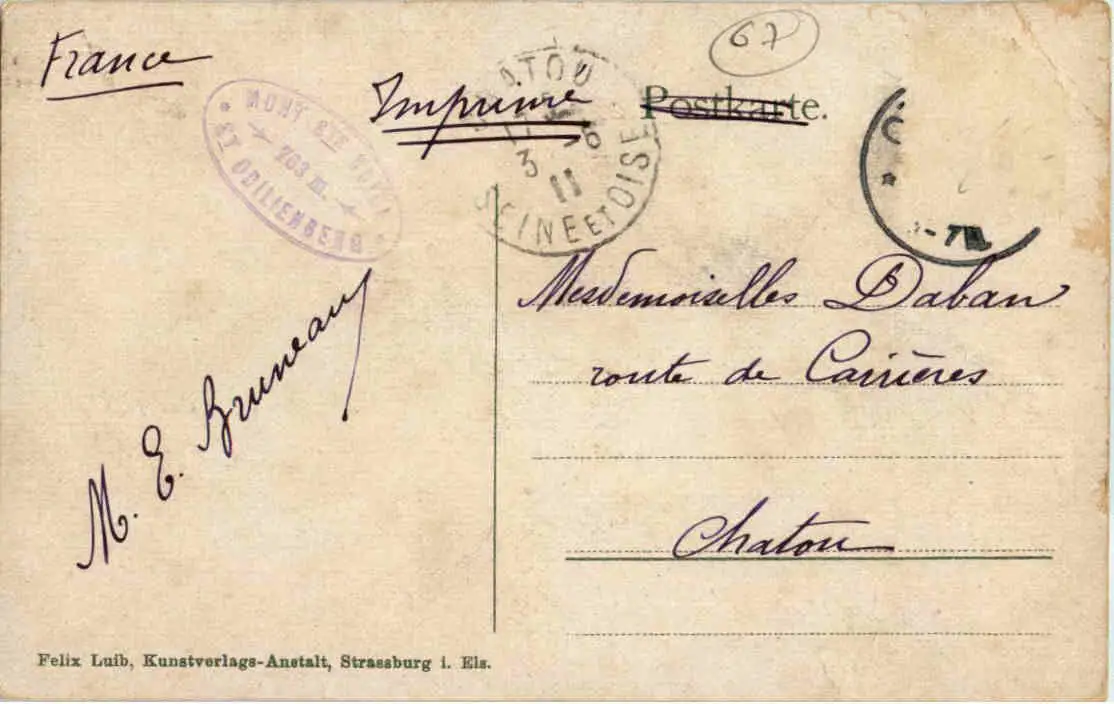 France
67
Imprimé
Postkarte.
MONT STE
763 m.
ST ODILIENBERG
ATOU
3
11
SEINE ET OISE
Mesdemoiselles Daban
route de Carrières
Chatou
M. E. Bruneau
Felix Luib, Kunstverlags-Anstalt, Strassburg i. Els.